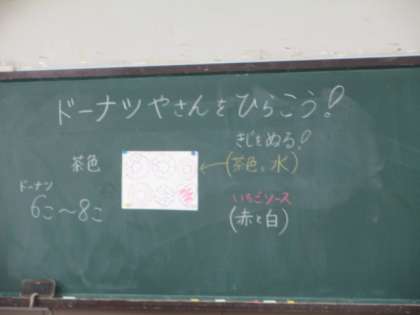 ドーナツやさんをひらこう!
きじをぬる!
茶色
(茶色。水)
ドーナツ
6こ〜8こ
いちごソース
(赤と白)